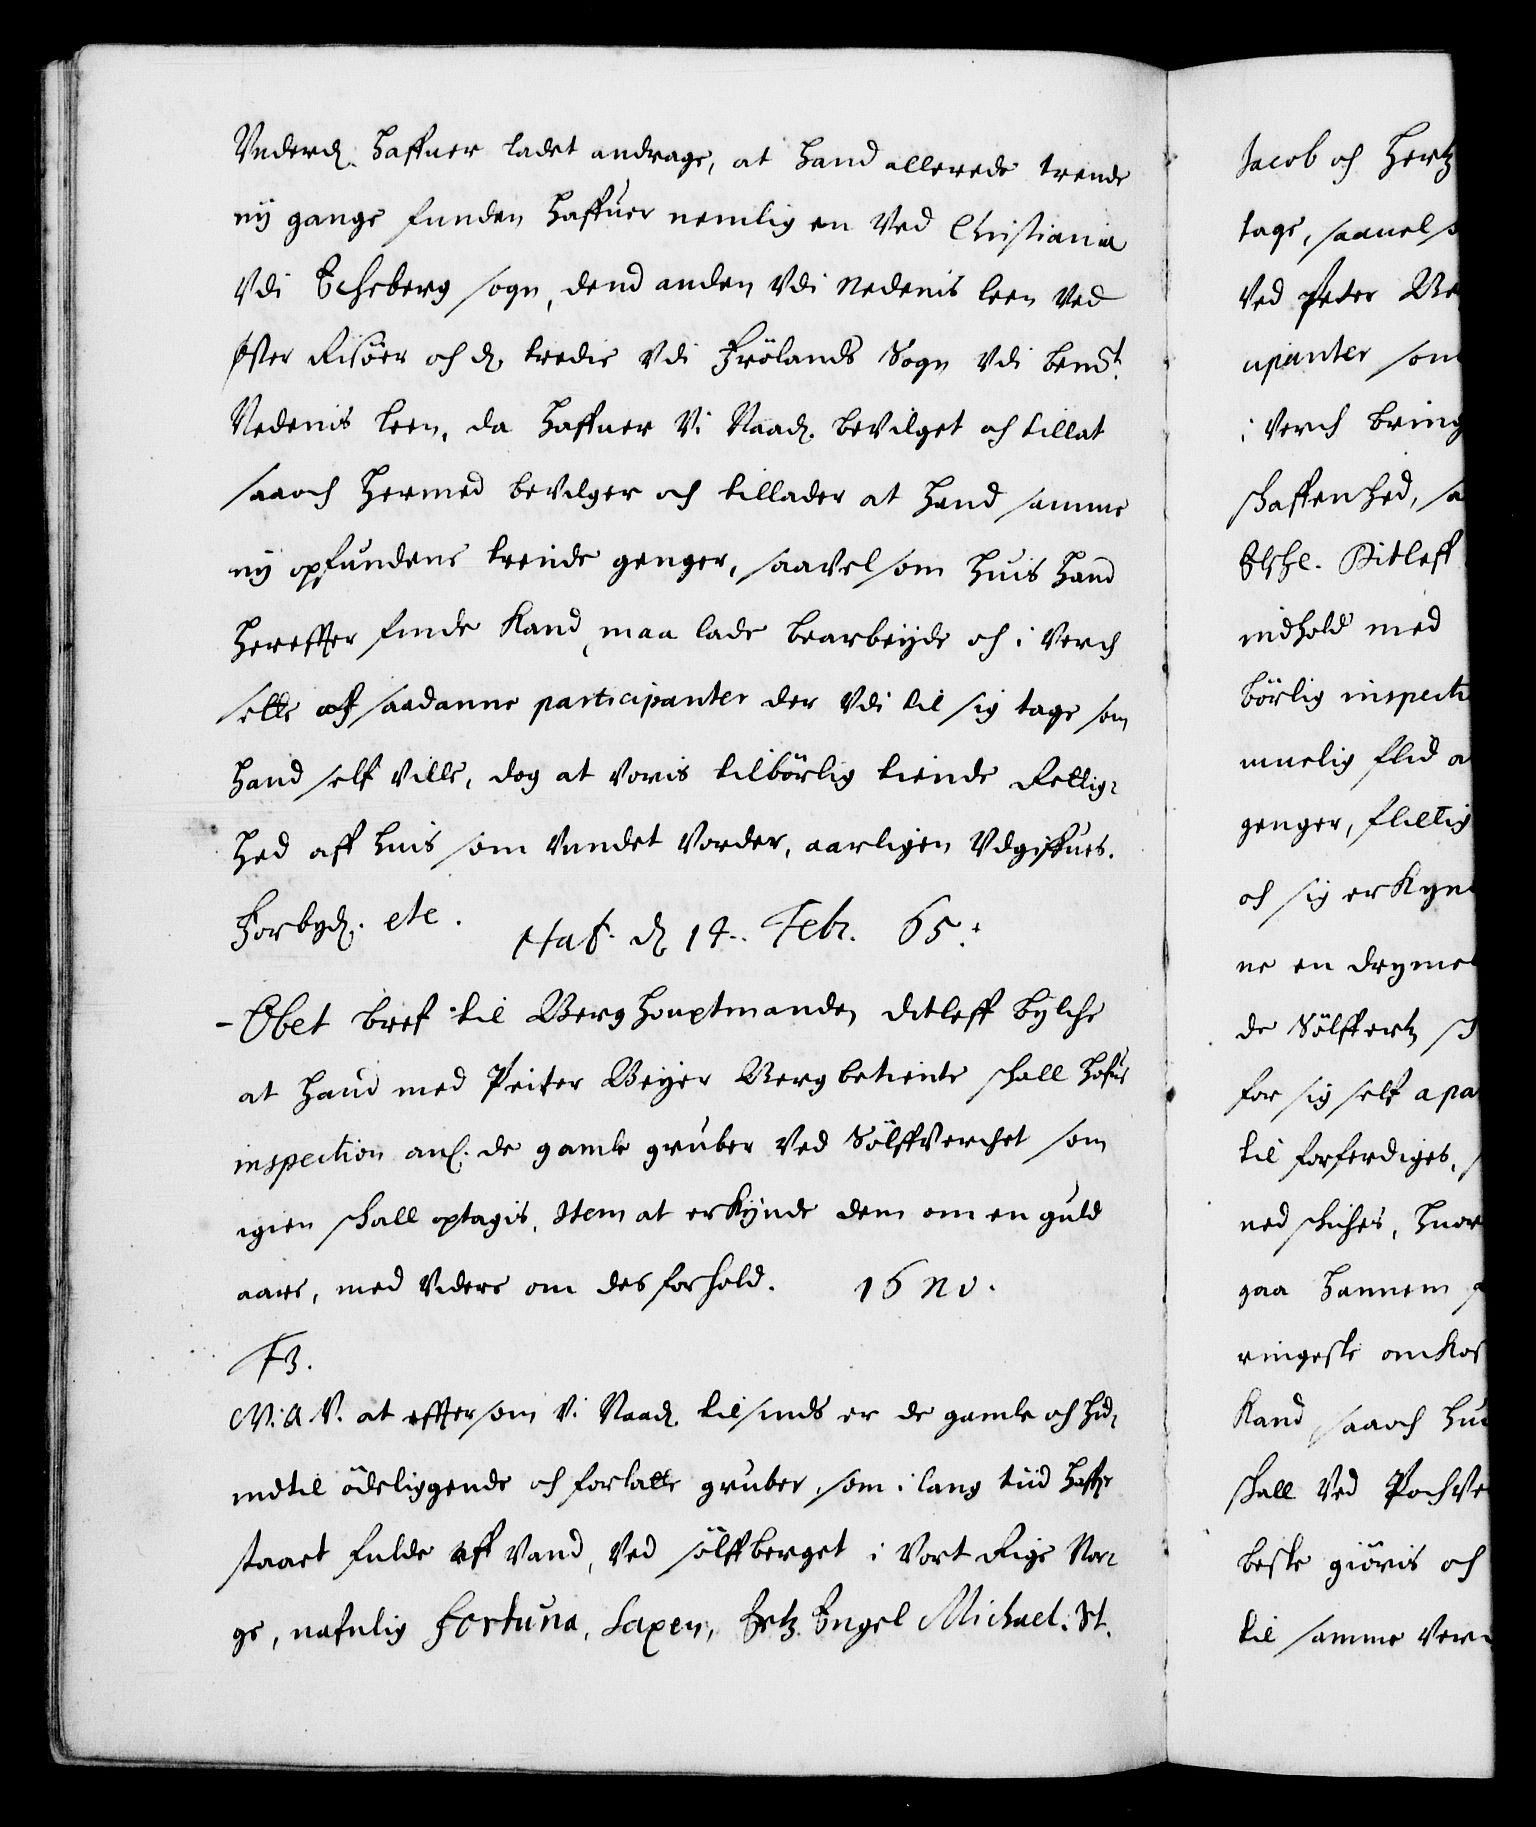 Underd. Haffuer ladet andrage, at hand allerede trende
nÿ gange funden haffuer nemlig en ved Christiania
udi Echeberg sogn, dend anden udi Nedenis leen ved
Øster Risöer och d. tredie udi Frölands Sogn udi bemt.
Nedenis leen, da haffuer vi Naad. bevilget och tillat
saaoch hermed bevilger och tillader at hand samme
nÿ opfundene trende genger, saavel som huis hand
hereffter finde kand, maa lade bearbeÿde och i verch
sette och saadanne participanter der udi til sig tage som
hand self ville, dog at voris tilbörlig tiende Rettig-
hed aff huis som vundet vorder, aarligen udgiffues.
Forbyd. etc. Haf. d. 14. Febr. 65.
- Obet bref til Berghouptmanden Ditleff Bÿlche
at hand med Peiter Beÿer Bergbetiente schall hafue
inspection anl. de gamle gruber ved Sölffverchet som
igien schall optagis, Item at erkÿnde dem om en guld
aare, med videre om des forhold. 16 no.
F3.
W. A. V. at efftersom vi Naad. tilsinds er de gamle och hid-
indtil ödeliggende och forlatte gruber, som i lang tiid haffr
staaet fulde aff vand, ved sölffberget i vort Rige Nor-
ge, nafnlig Fortuna, Saxen, Ertz Engel Michael. St.
Jacob och Hertz
tage, saauel s
ved Peter Be
cipanter som
i verch bring
schaffenhed, sa
Ditleff
indhold med
börlig inspecti
muelig flid a
genger, flittig
och sig erkÿn
ne en drÿme
de Sölffertz s
for sig self apa
til forferdiges, s
ned schiches, huor
gaa hannem
ringeste omkos
kand, saaoch hu
schall ved Pochve
beste giöris och
til samme ver